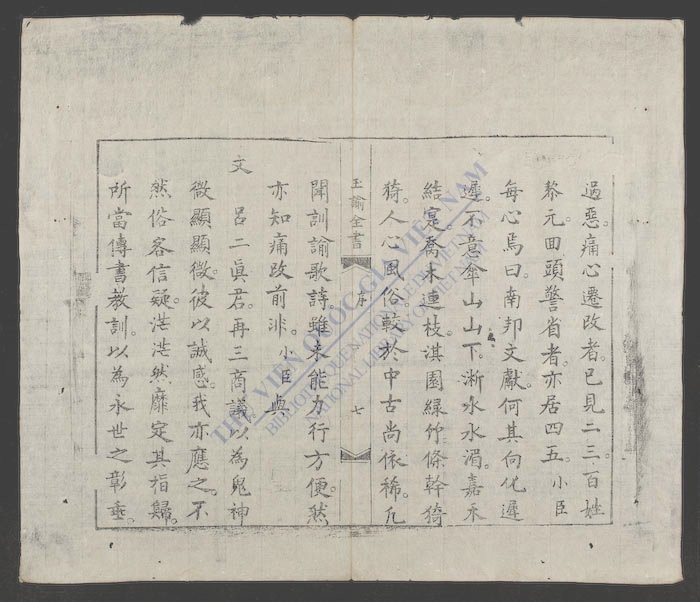 過惡。痛心遷改者。已見二三。百姓
黎元。回頭警省者。亦居四五。小臣
每心焉曰。南邦文獻。何其向化遲
遲。不意傘山山下。淅水水湄。嘉禾
結寔。喬木連枝。淇園綠竹。條幹猗
猗。人心風俗。較於中古尚依稀。凡
玉諭全書 序 七
聞訓諭歌詩。雖未能力行方便。然
亦知痛改前非。小臣與
文 呂二眞君。再三商議。以為鬼神
微顯顯微。彼以誠感。我亦應之。不
然俗客信疑。茫茫然靡定其指歸。
所當傳書教訓。以為永世之彰垂。
THƯ VIỆN QUỐC GIA VIỆT NAM
BIBLIOTHÈQUE NATIONALE DU VIETNAM
NATIONAL LIBRARY OF VIETNAM